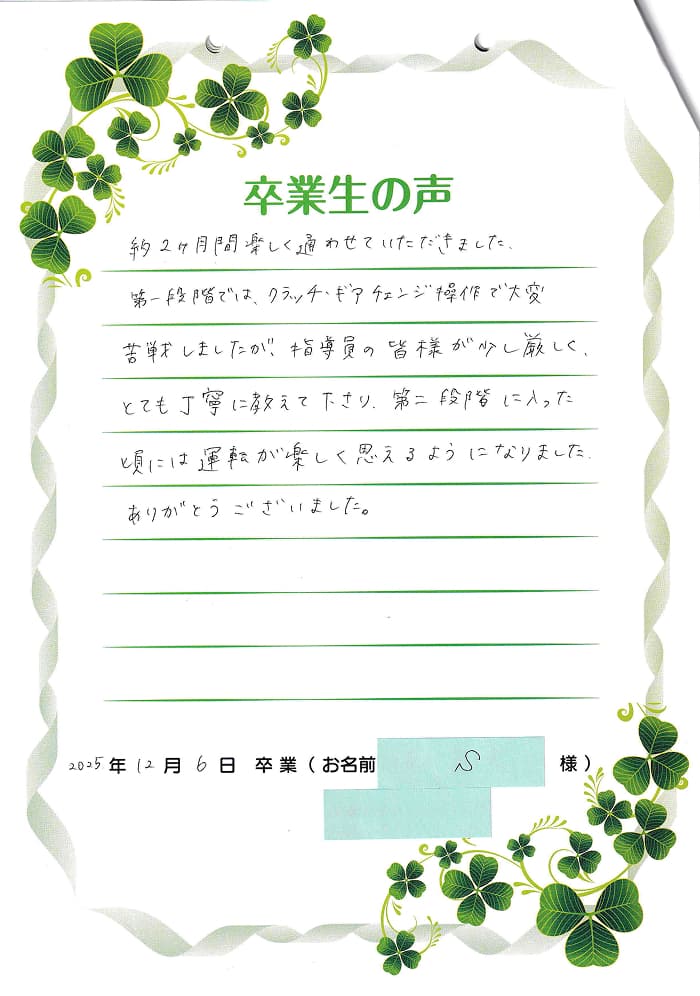 卒業生の声
約2ヶ月間楽しく通わせていただきました。
第一段階では、クラッチ・ギアチェンジ操作で大変
苦戦しましたが、指導員の皆様が少し厳しく、
とても丁寧に教えて下さり、第二段階に入った
頃には運転が楽しく思えるようになりました。
ありがとうございました。
2025年12月6日 卒業(お名前 S 様)